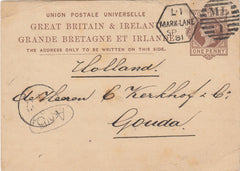 UNION POSTALE UNIVERSELLE
GREAT BRITAIN & IRELAND
GRANDE BRETAGNE ET IRLANDE
THE ADDRESS ONLY TO BE WRITTEN ON THIS SIDE.
L1
MARK-LANE
SP
81
M.L.
ONE PENNY
Holland
de Heeren C Kerkhof & Co
Gouda.